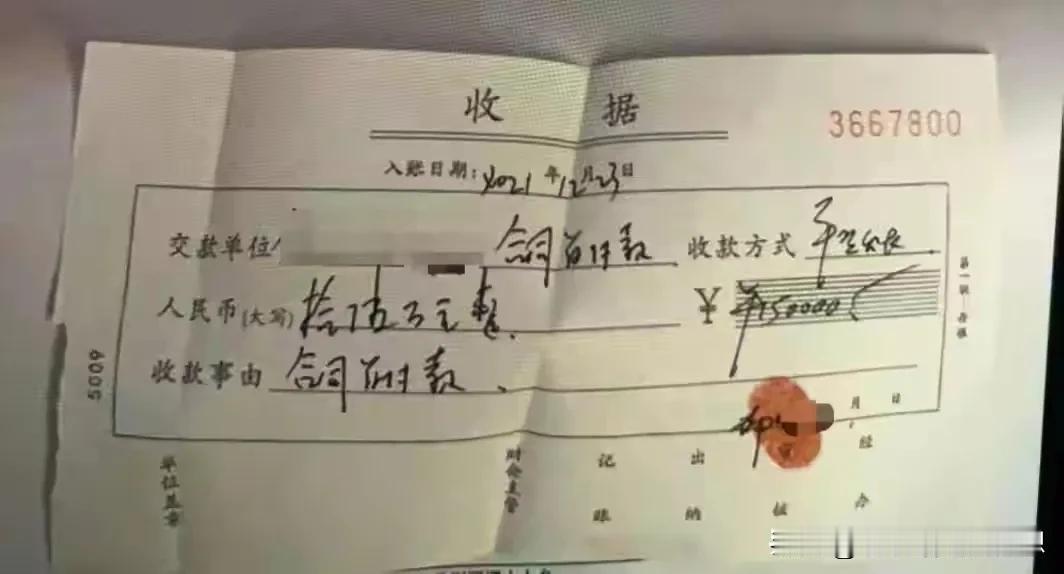 收据
3667800
入账日期：2021年12月23日
交款单位 合同首付款 收款方式
人民币(大写) 拾伍万元整 ￥ 150000
收款事由 合同首付款
月 日
5009
单位盖章 财会主管 记账 出纳 经办